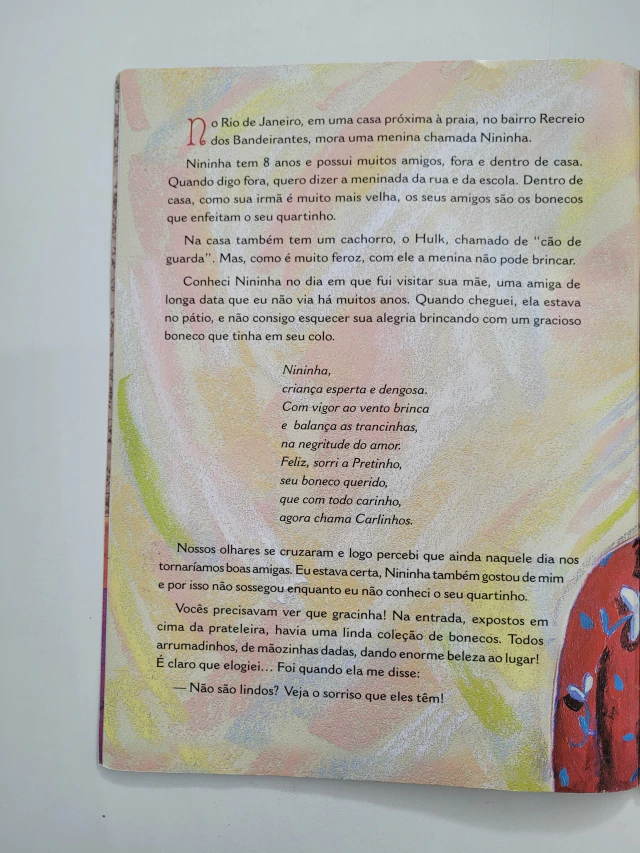 No Rio de Janeiro, em uma casa próxima à praia, no bairro Recreio
dos Bandeirantes, mora uma menina chamada Nininha.
Nininha tem 8 anos e possui muitos amigos, fora e dentro de casa.
Quando digo fora, quero dizer a meninada da rua e da escola. Dentro de
casa, como sua irmã é muito mais velha, os seus amigos são os bonecos
que enfeitam o seu quartinho.
Na casa também tem um cachorro, o Hulk, chamado de “cão de
guarda”. Mas, como é muito feroz, com ele a menina não pode brincar.
Conheci Nininha no dia em que fui visitar sua mãe, uma amiga de
longa data que eu não via há muitos anos. Quando cheguei, ela estava
no pátio, e não consigo esquecer sua alegria brincando com um gracioso
boneco que tinha em seu colo.
Nininha,
criança esperta e dengosa.
Com vigor ao vento brinca
e balança as trancinhas,
na negritude do amor.
Feliz, sorri a Pretinho,
seu boneco querido,
que com todo carinho,
agora chama Carlinhos.
Nossos olhares se cruzaram e logo percebi que ainda naquele dia nos
tornaríamos boas amigas. Eu estava certa, Nininha também gostou de mim
e por isso não sossegou enquanto eu não conheci o seu quartinho.
Vocês precisavam ver que gracinha! Na entrada, expostos em
cima da prateleira, havia uma linda coleção de bonecos. Todos
arrumadinhos, de mãozinhas dadas, dando enorme beleza ao lugar!
É claro que elogiei... Foi quando ela me disse:
— Não são lindos? Veja o sorriso que eles têm!